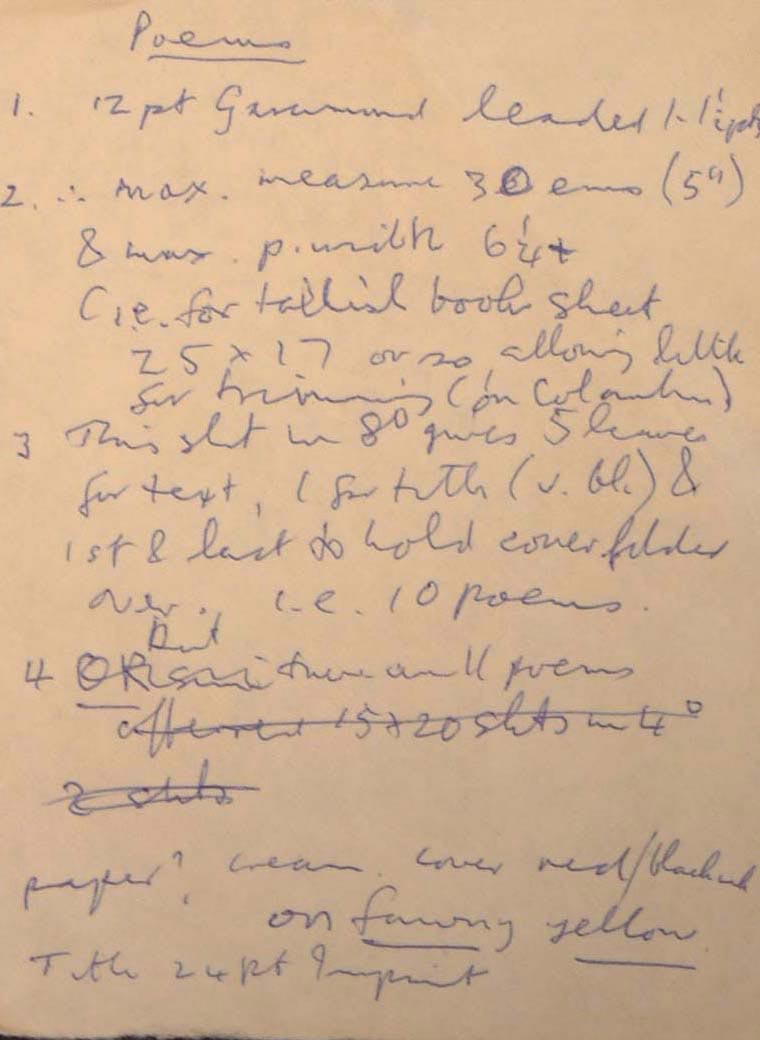 Poems
1. 12pt Garamond leaded 1-1½pts
2. ∴ max. measure 30 ems (5")
& max. p. width 6¼
(i.e. for tallish book sheet
25 x 17 or so, allowing little
for trimming (on Columbia)
3 This sht in 8º gives 5 leaves
for text, 1 for title (v. bl.) &
1st & last to hold cover folder
over., i.e. 10 poems.
but
4 OK there are 11 poems
15x20 shts in 4º
2 shts
paper? cream. cover red/black
on fawny yellow
Title 24pt Imprint